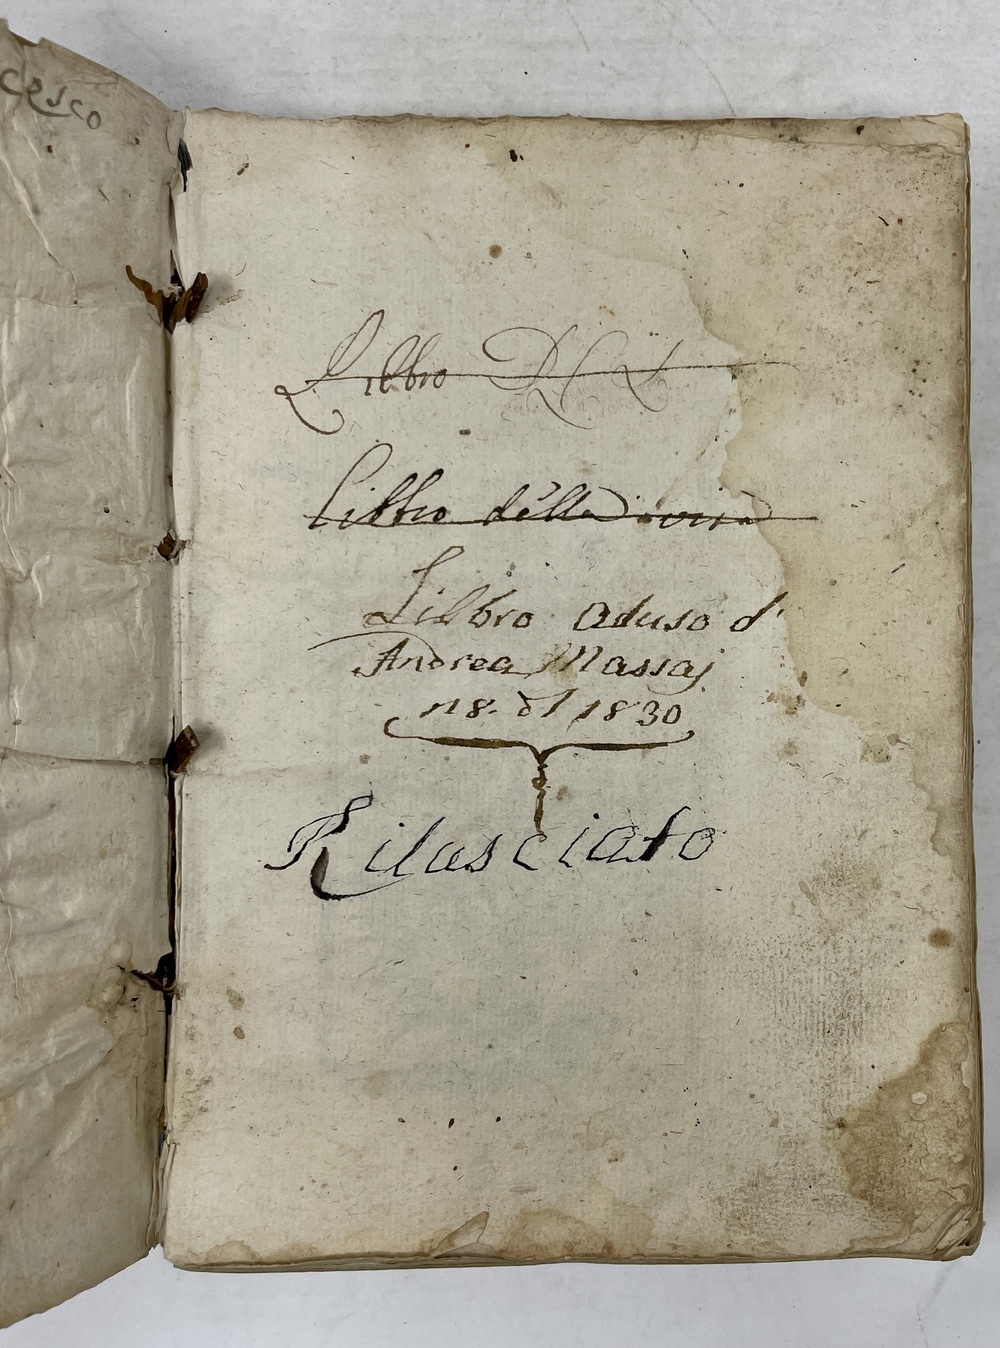 CRSCO
Lilbro
Libbro della
Lilbro aduso d'
Andrea Massaj
N 8. dl 1830
Rilasciato